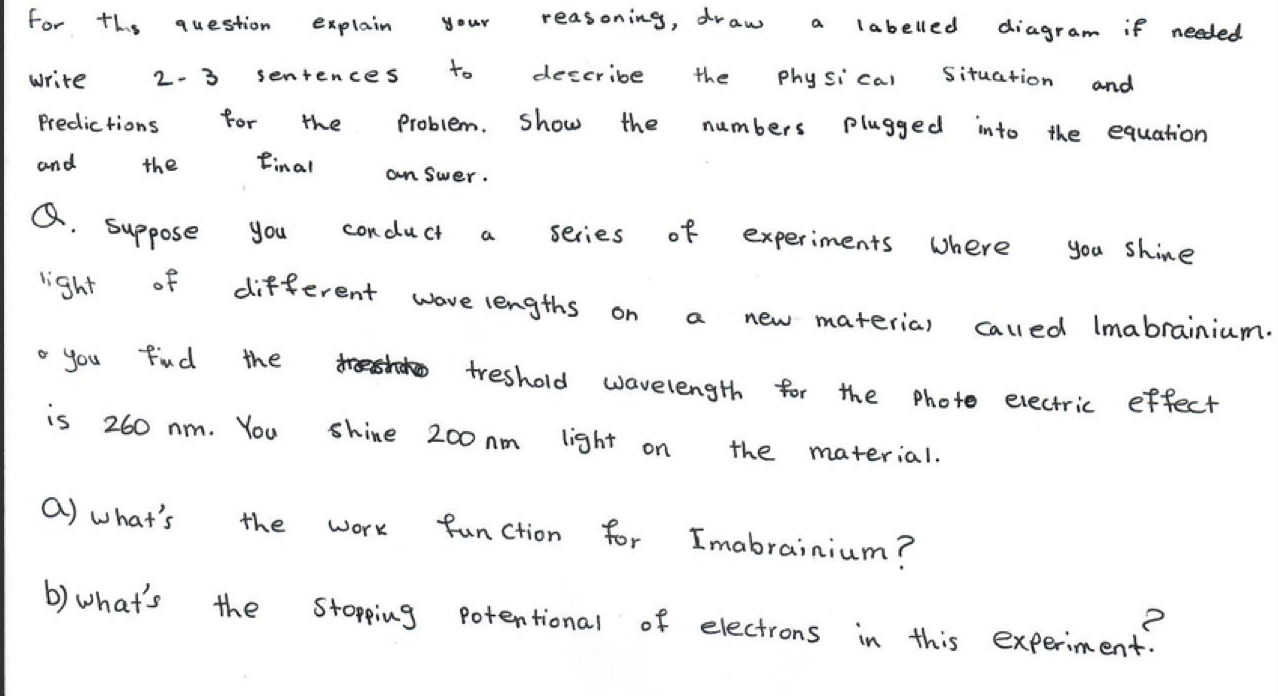 For this question explain your reasoning, draw a labelled diagram if needed
write 2-3 sentences to describe the physical situation and
Predictions for the problem. Show the numbers plugged into the equation
and the final answer.
Q. Suppose you conduct a series of experiments where you shine
light of different wavelengths on a new material called Imabrainium.
• you find the treshold wavelength for the photo electric effect
is 260 nm. You shine 200 nm light on the material.
a) what's the work function for Imabrainium?
b) what's the stopping potentional of electrons in this experiment?